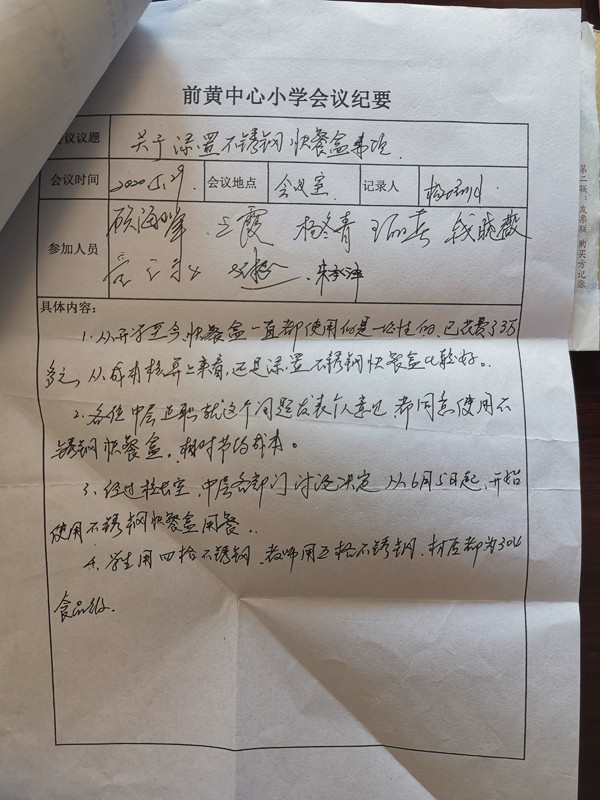 前黄中心小学会议纪要
会议议题 关于添置不锈钢快餐盒事项.
会议时间 2020.5.29 会议地点 会议室 记录人
王霞 杨冬青 钱晓薇
参加人员
具体内容:
1.从开学至今,快餐盒一直都使用的是一次性的,已花费了3万
多元,从成本核算上来看,还是添置不锈钢快餐盒比较好。
2.各位中层正职就这个问题发表个人意见 都同意使用不
锈钢快餐盒,相对节约成本。
3.经过校长室,中层各部门讨论决定 从6月5日起,开始
使用不锈钢快餐盒用餐.
4.学生用四格不锈钢,教师用五格不锈钢,材质都为304
食品级.
第二联:发票联 购买方记账